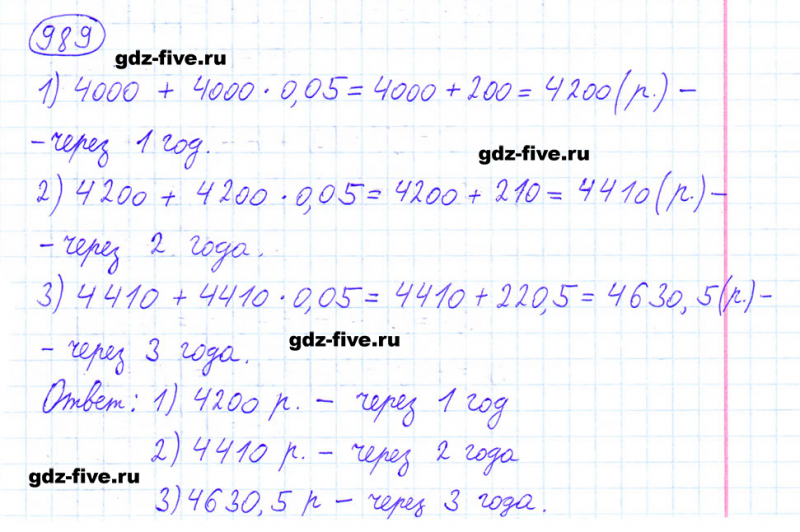 989
gdz-five.ru
1) 4000 + 4000 · 0,05 = 4000 + 200 = 4200 (р.) -
- через 1 год.
gdz-five.ru
2) 4200 + 4200 · 0,05 = 4200 + 210 = 4410 (р.) -
- через 2 года.
3) 4410 + 4410 · 0,05 = 4410 + 220,5 = 4630,5 (р.) -
- через 3 года.
gdz-five.ru
Ответ: 1) 4200 р. - через 1 год
2) 4410 р. - через 2 года
gdz-five.ru
3) 4630,5 р - через 3 года.